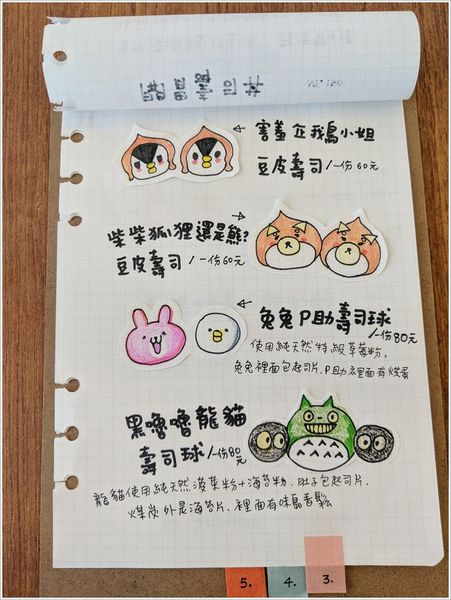 害羞企鵝小姐
豆皮壽司 /一份60元
柴柴狐狸還是熊?
豆皮壽司 /一份60元
兔兔P助壽司球
/一份80元
使用純天然特級草莓粉,
兔兔裡面包起司片,P助裡面有烘蛋
黑嚕嚕龍貓
壽司球 /一份80元
龍貓使用純天然菠菜粉+海苔粉,肚子包起司片,
煤炭外是海苔片、裡面有味島香鬆
5.
4.
3.